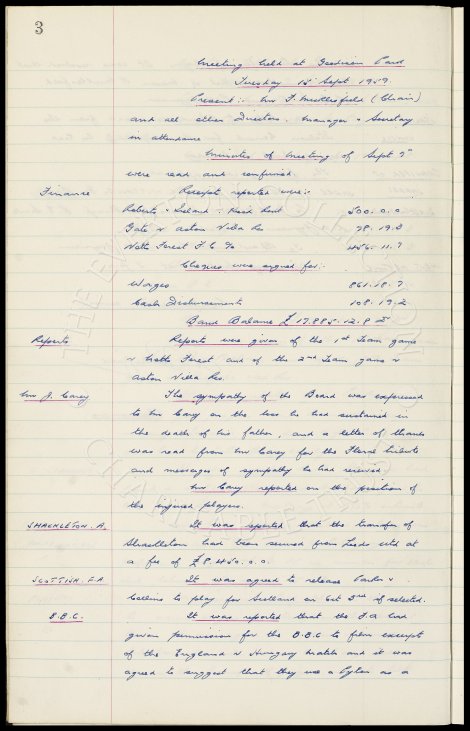 3
Meeting held at Goodison Park
Tuesday 15 Sept 1959.
Present:- Mr F. Micklesfield (Chair)
and all other Directors. Manager & Secretary
in attendance
Minutes of Meeting of Sept 7th
were read and confirmed
Finance Receipts reported were:-
Roberts & Ireland. Head Rent 500. 0. 0
Gate v Aston Villa Res 78. 19. 3
Notts Forest F C %
Cheques were signed for:-
Wages 861. 18. 7
Cash Disbursements 108. 19. 2
Bank Balance £17.885. 12. 8
Reports Reports were given of the 1st Team game
v Notts Forest and of the 2nd Team game v
Aston Villa Res.
Mr J. Carey The sympathy of the Board was expressed
to Mr Carey on the loss he had sustained in
the death of his father, and a letter of thanks
was read from Mr Carey for the floral tribute
and messages of sympathy he had received
Mr Carey reported on the position of
the injured players.
SHACKLETON. A. It was reported that the transfer of
Shackleton had been secured from Leeds Utd at
a fee of £8.450. 0. 0.
SCOTTISH. F.A It was agreed to release Parker &
Collins to play for Scotland on Oct 3rd if selected.
B.B.C. It was reported that the F.A had
given permission for the B.B.C to film excerpt
of the England v Hungary match and it was
agreed to suggest that they use a Pylon as a